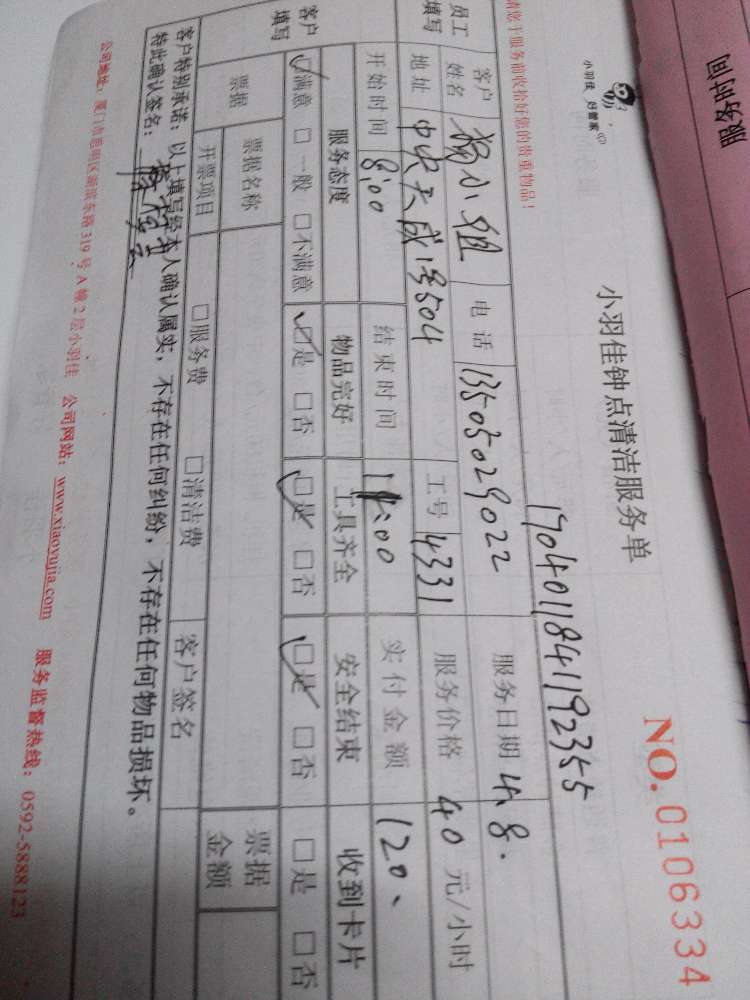 服务时间
小羽佳 好管家
小羽佳钟点清洁服务单
NO.0106334
请您于服务前收拾好您的贵重物品!
1704011841192355
员工填写
客户姓名 杨小姐 电话 13505029022 服务日期 4.8.
地址 中央天成1号504 工号 4331 服务价格 40 元/小时
开始时间 8:00 结束时间 11:00 实付金额 120.
客户填写
服务态度 物品完好 工具齐全 安全结束 收到卡片
☑满意 □一般 □不满意 ☑是 □否 ☑是 □否 ☑是 □否 □是 □否
票据 票据名称 票据金额
开票项目 □服务费 □清洁费 客户签名
客户特别承诺:以上填写经本人确认属实,不存在任何纠纷,不存在任何物品损坏。
特此确认签名:
公司地址:厦门市思明区湖滨东路319号A幢2层小羽佳 公司网站:www.xiaoyujia.com 服务监督热线:0592-5888123